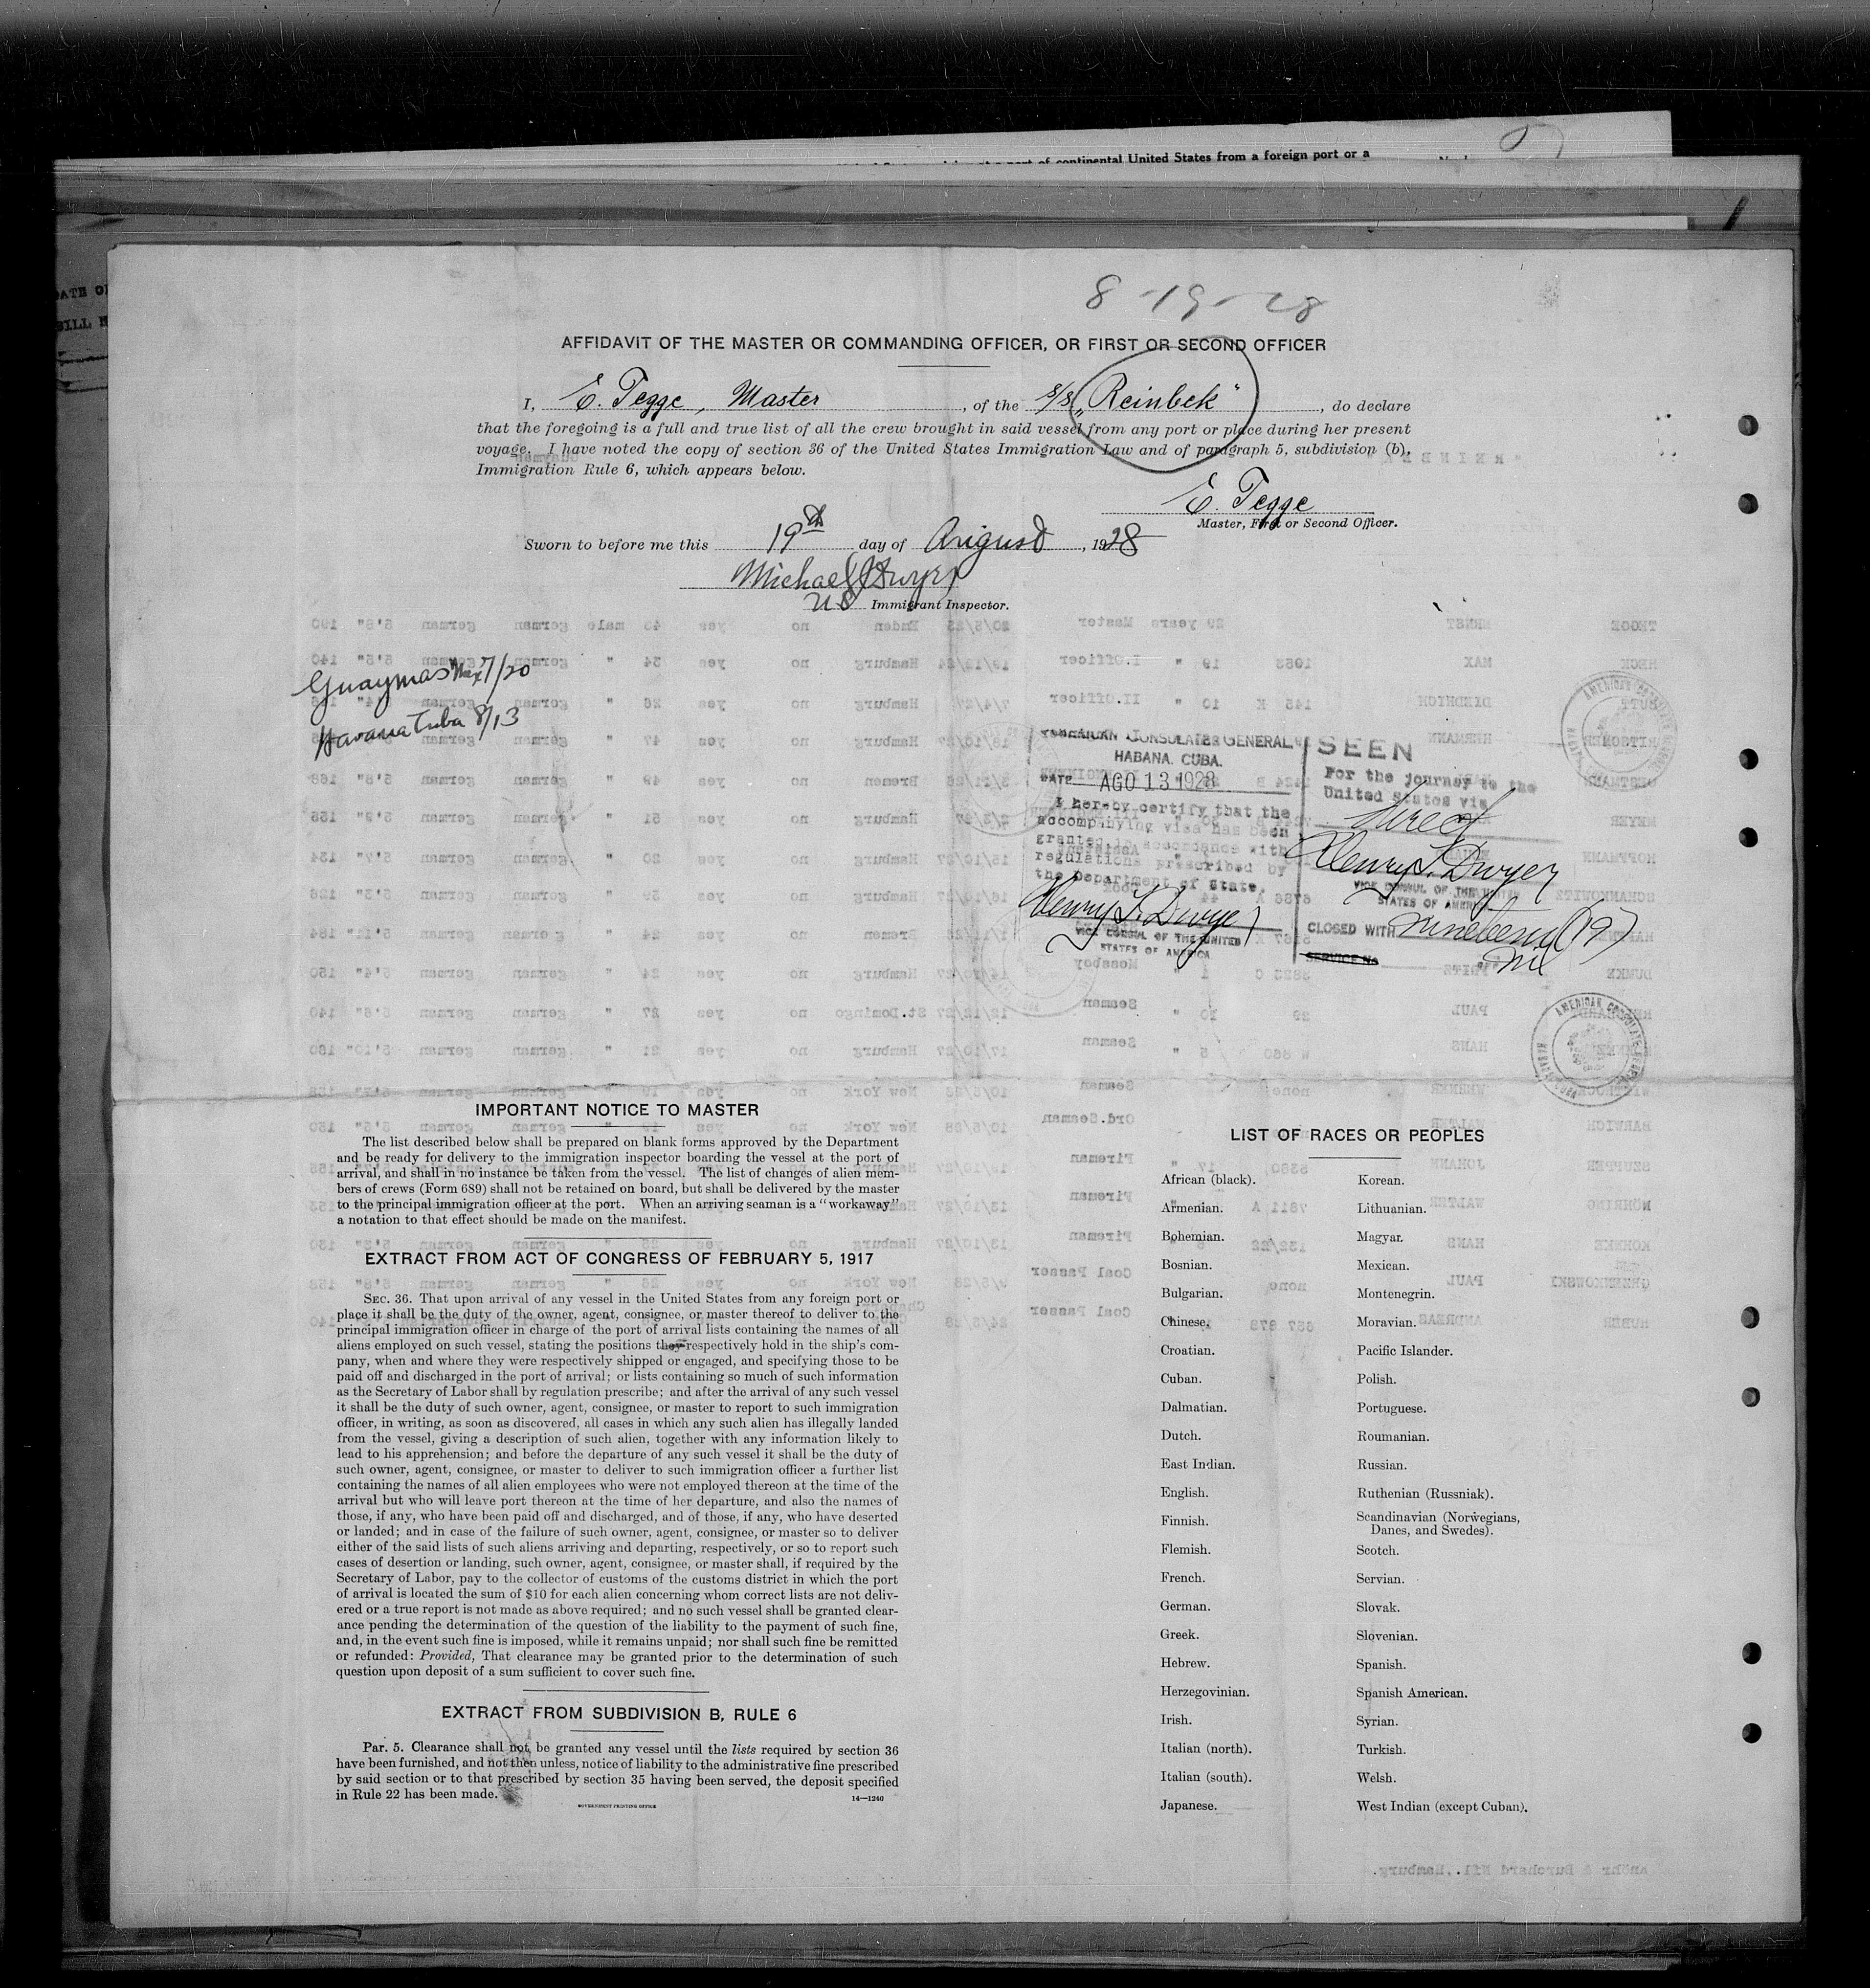 continental United States from a foreign port or a
8-19-28
AFFIDAVIT OF THE MASTER OR COMMANDING OFFICER, OR FIRST OR SECOND OFFICER
I, E. Tegge, Master, of the S/S „Reinbek“, do declare
that the foregoing is a full and true list of all the crew brought in said vessel from any port or place during her present
voyage. I have noted the copy of section 36 of the United States Immigration Law and of paragraph 5, subdivision (b),
Immigration Rule 6, which appears below.
E. Tegge
Master, First or Second Officer.
Sworn to before me this 19th day of August, 1928
Michael Dwyer
US Immigrant Inspector.
Guaymas Mex 7/20
Havana Cuba 8/13
AMERICAN CONSULATE GENERAL
HABANA, CUBA.
DATE AGO 13 1928
I hereby certify that the
accompanying visa has been
granted in accordance with
regulations prescribed by
the Department of State.
Henry T. Dwyer
VICE CONSUL OF THE UNITED
STATES OF AMERICA
SEEN
For the journey to the
United States via
direct
Henry T. Dwyer
VICE CONSUL OF THE UNITED
STATES OF AMERICA
CLOSED WITH nineteen (19)
SERVICE No
IMPORTANT NOTICE TO MASTER
The list described below shall be prepared on blank forms approved by the Department
and be ready for delivery to the immigration inspector boarding the vessel at the port of
arrival, and shall in no instance be taken from the vessel. The list of changes of alien mem-
bers of crews (Form 689) shall not be retained on board, but shall be delivered by the master
to the principal immigration officer at the port. When an arriving seaman is a "workaway"
a notation to that effect should be made on the manifest.
EXTRACT FROM ACT OF CONGRESS OF FEBRUARY 5, 1917
SEC. 36. That upon arrival of any vessel in the United States from any foreign port or
place it shall be the duty of the owner, agent, consignee, or master thereof to deliver to the
principal immigration officer in charge of the port of arrival lists containing the names of all
aliens employed on such vessel, stating the positions they respectively hold in the ship's com-
pany, when and where they were respectively shipped or engaged, and specifying those to be
paid off and discharged in the port of arrival; or lists containing so much of such information
as the Secretary of Labor shall by regulation prescribe; and after the arrival of any such vessel
it shall be the duty of such owner, agent, consignee, or master to report to such immigration
officer, in writing, as soon as discovered, all cases in which any such alien has illegally landed
from the vessel, giving a description of such alien, together with any information likely to
lead to his apprehension; and before the departure of any such vessel it shall be the duty of
such owner, agent, consignee, or master to deliver to such immigration officer a further list
containing the names of all alien employees who were not employed thereon at the time of the
arrival but who will leave port thereon at the time of her departure, and also the names of
those, if any, who have been paid off and discharged, and of those, if any, who have deserted
or landed; and in case of the failure of such owner, agent, consignee, or master so to deliver
either of the said lists of such aliens arriving and departing, respectively, or so to report such
cases of desertion or landing, such owner, agent, consignee, or master shall, if required by the
Secretary of Labor, pay to the collector of customs of the customs district in which the port
of arrival is located the sum of $10 for each alien concerning whom correct lists are not deliv-
ered or a true report is not made as above required; and no such vessel shall be granted clear-
ance pending the determination of the question of the liability to the payment of such fine,
and, in the event such fine is imposed, while it remains unpaid; nor shall such fine be remitted
or refunded: Provided, That clearance may be granted prior to the determination of such
question upon deposit of a sum sufficient to cover such fine.
EXTRACT FROM SUBDIVISION B, RULE 6
Par. 5. Clearance shall not be granted any vessel until the lists required by section 36
have been furnished, and not then unless, notice of liability to the administrative fine prescribed
by said section or to that prescribed by section 35 having been served, the deposit specified
in Rule 22 has been made.
GOVERNMENT PRINTING OFFICE 14—1240
LIST OF RACES OR PEOPLES
African (black).
Armenian.
Bohemian.
Bosnian.
Bulgarian.
Chinese.
Croatian.
Cuban.
Dalmatian.
Dutch.
East Indian.
English.
Finnish.
Flemish.
French.
German.
Greek.
Hebrew.
Herzegovinian.
Irish.
Italian (north).
Italian (south).
Japanese.
Korean.
Lithuanian.
Magyar.
Mexican.
Montenegrin.
Moravian.
Pacific Islander.
Polish.
Portuguese.
Roumanian.
Russian.
Ruthenian (Russniak).
Scandinavian (Norwegians,
Danes, and Swedes).
Scotch.
Servian.
Slovak.
Slovenian.
Spanish.
Spanish American.
Syrian.
Turkish.
Welsh.
West Indian (except Cuban).